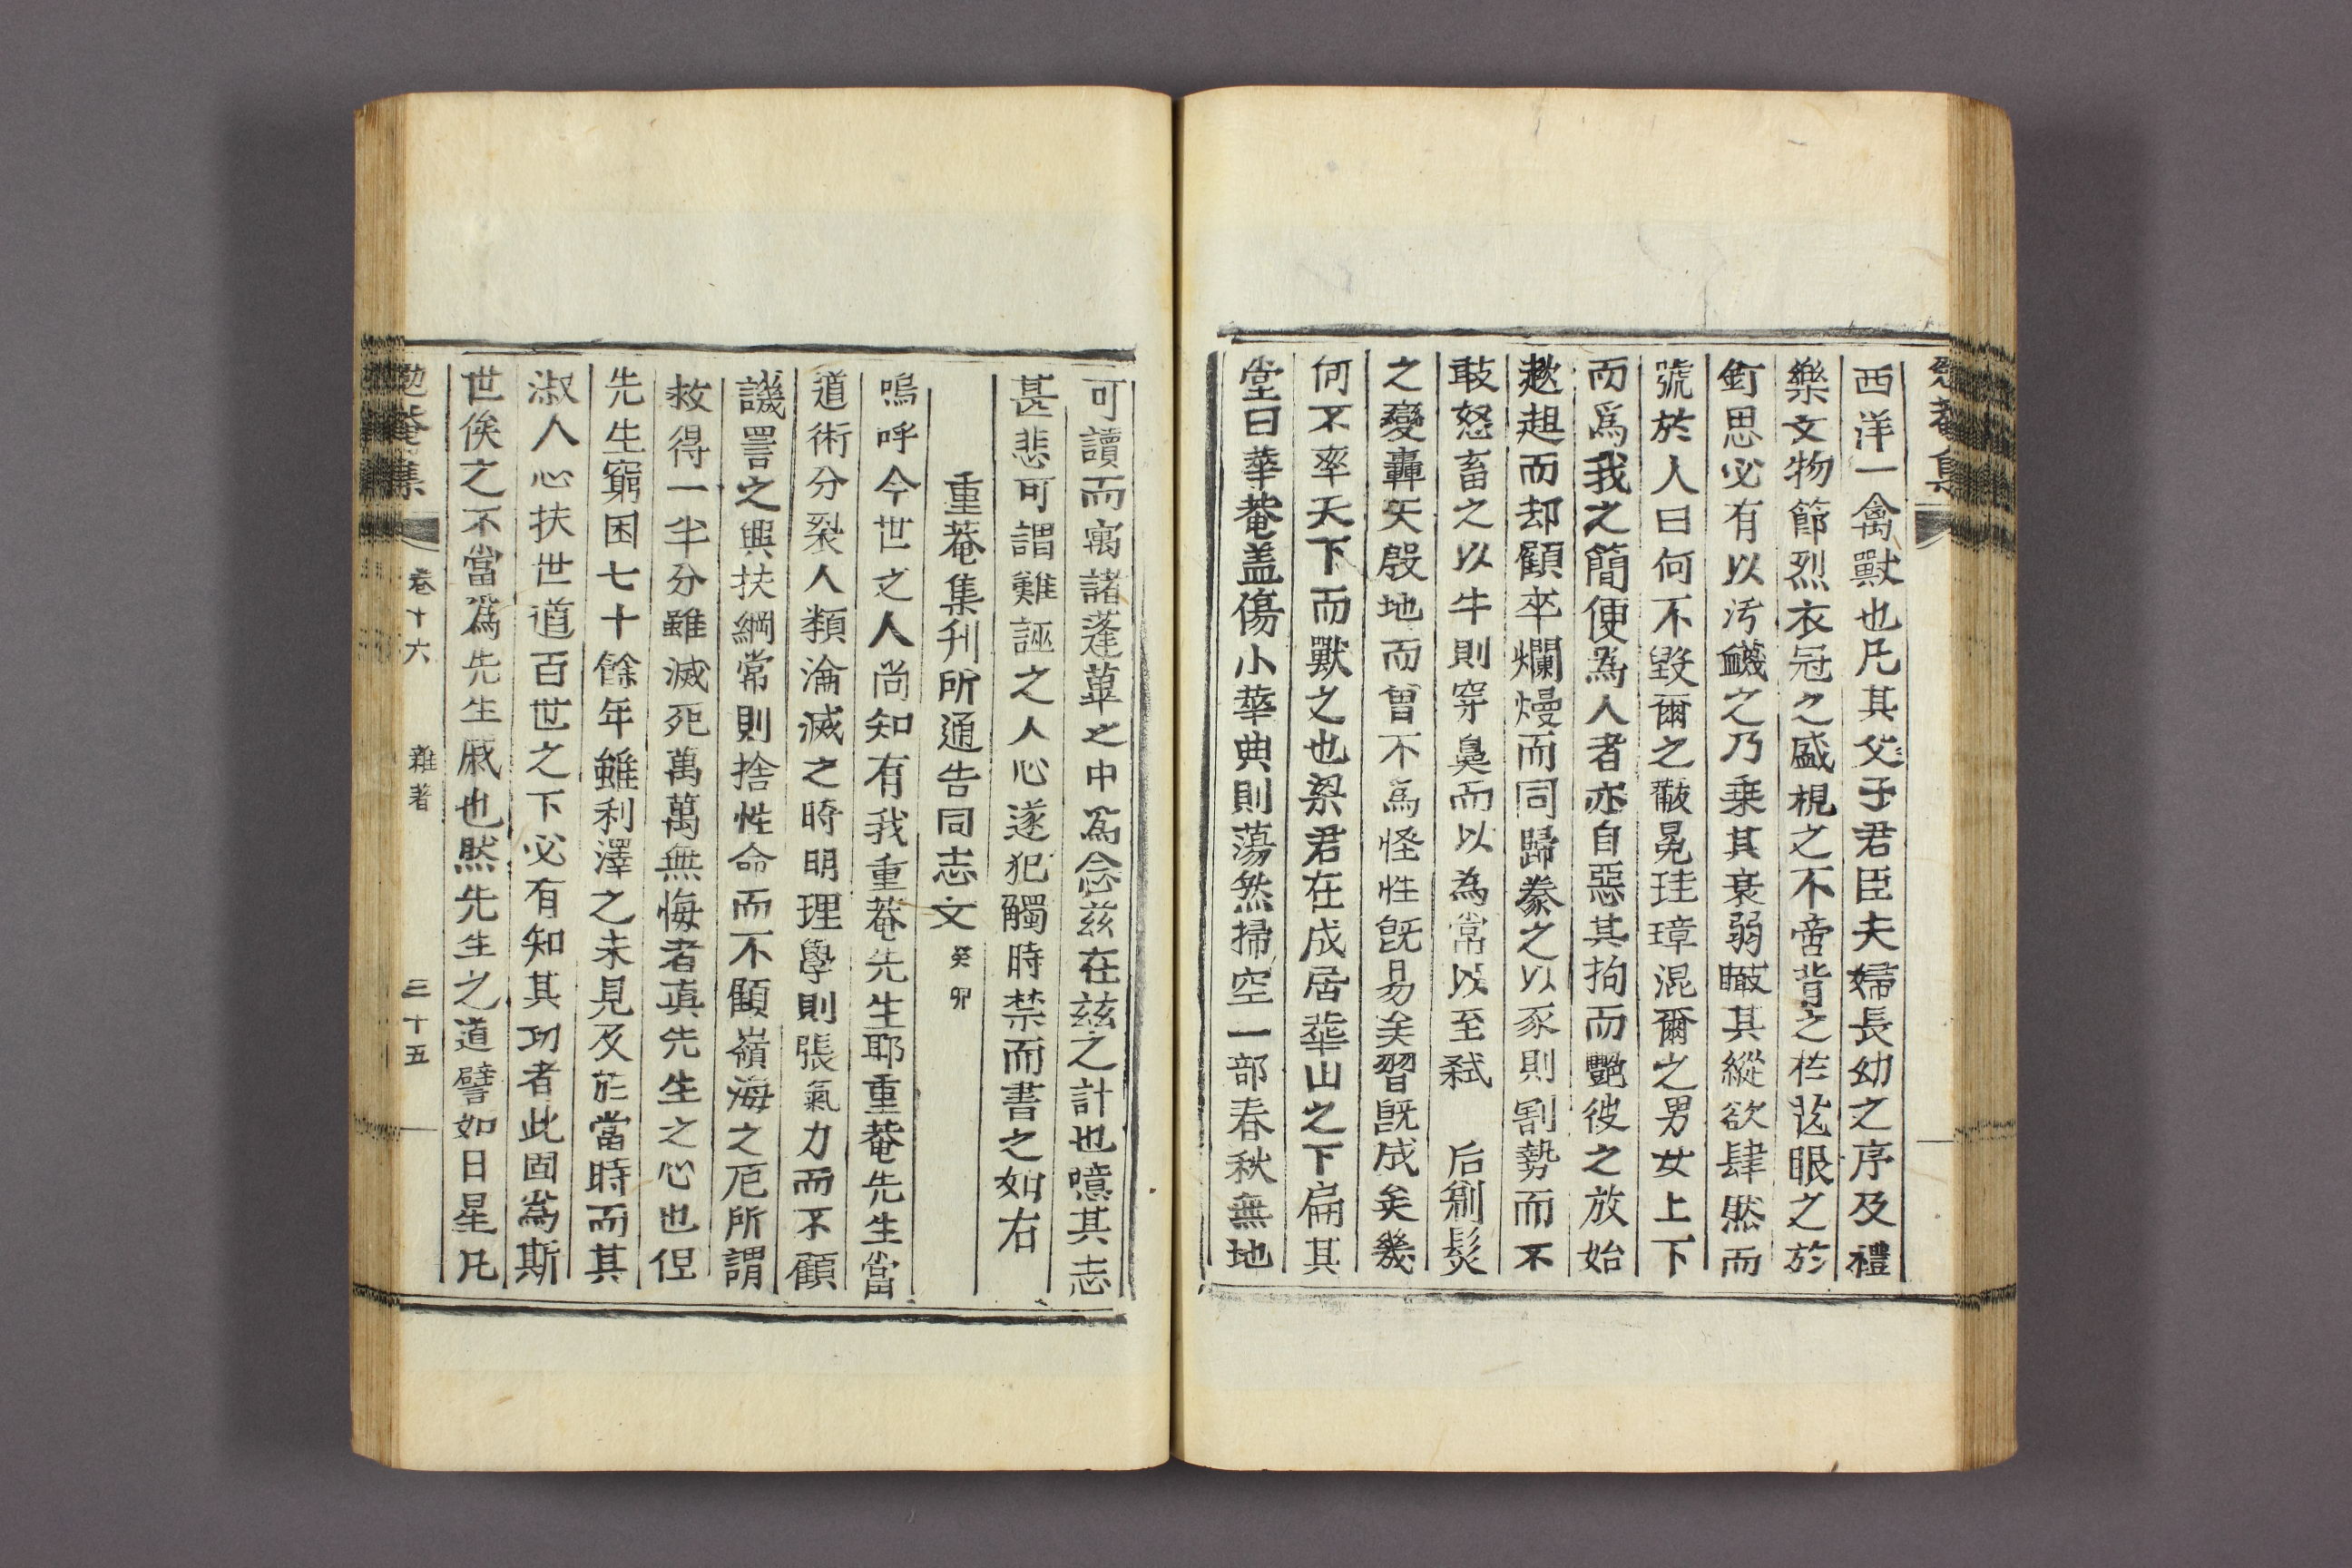 勉菴集
西洋一禽獸也凡其父子君臣夫婦長幼之序及禮
樂文物節烈衣冠之盛視之不啻背之芒茲眼之於
釘思必有以汚衊之乃乗其衰弱瞰其縱欲肆然而
號於人曰何不毀爾之黻冕珪璋混爾之男女上下
而爲我之簡便爲人者亦自惡其拘而艷彼之放始
趑趄而却顧卒爛熳而同歸豢之以豕則割勢而不
敢怒畜之以牛則穿鼻而以為常以至弑 后剃髮
之變轟天殷地而曽不爲怪性旣易矣習旣成矣幾
何不率天下而獸之也梁君在成居華山之下扁其
堂曰華菴盖傷小華典則蕩然掃空一部春秋無地
可讀而寓諸蓬蓽之中爲念茲在茲之計也噫其志
甚悲可謂難誣之人心遂犯觸時禁而書之如右
重菴集刊所通告同志文 癸卯
嗚呼今世之人尚知有我重菴先生耶重菴先生當
道術分裂人類淪滅之時明理學則張氣力而不顧
譏詈之興扶綱常則捨性命而不顧嶺海之厄所謂
救得一半分雖滅死萬萬無悔者眞先生之心也但
先生窮困七十餘年雖利澤之未見及於當時而其
淑人心扶世道百世之下必有知其功者此固爲斯
世俟之不當爲先生戚也然先生之道譬如日星凡
勉菴集 卷十六 雜著 三十五